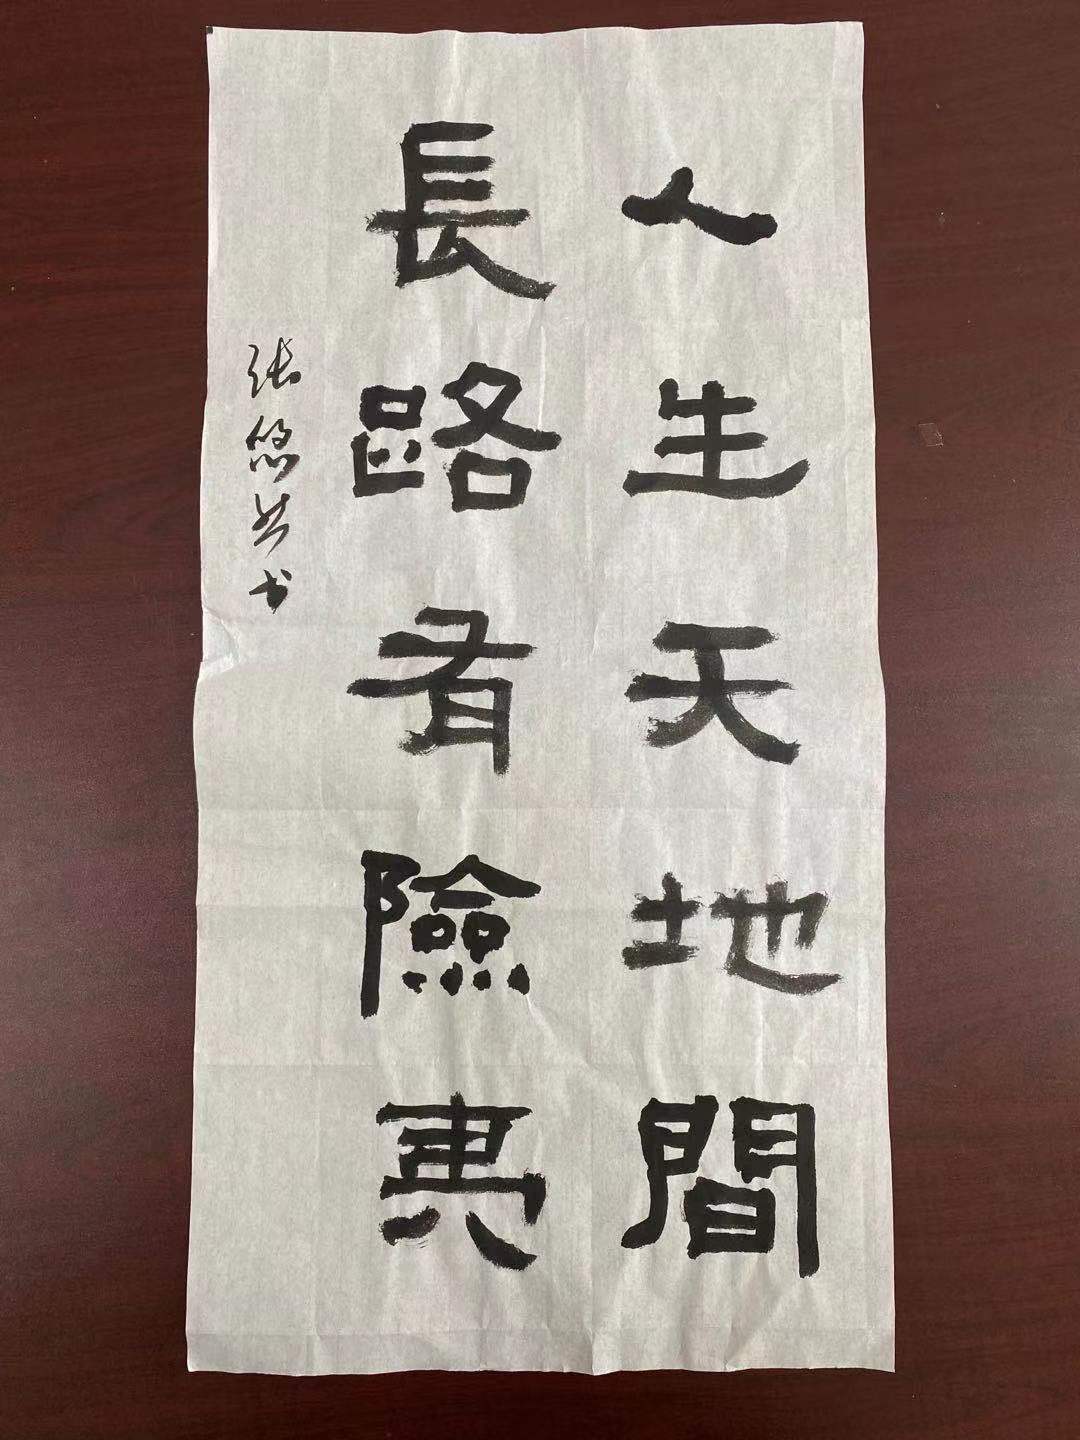 人生天地間
長路有險夷
张悠然书